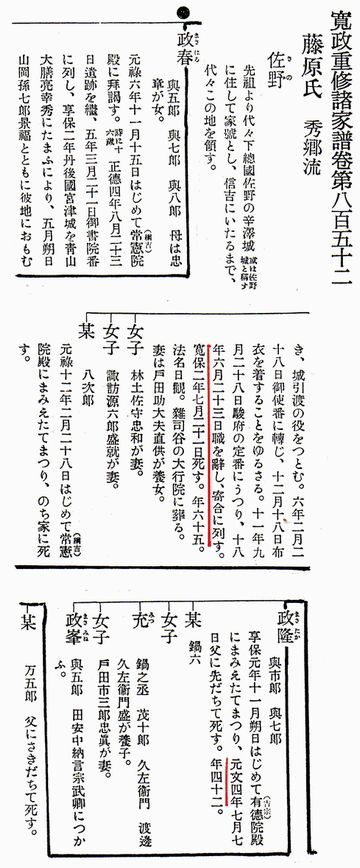 寛政重修諸家譜卷第八百五十二
藤原氏　秀郷流
佐野
先祖より代々下總國佐野の辛澤城 或は佐野城と稱す
に住して家號とし、信吉にいたるまで、
代々この地を領す。
政春
與五郎　與七郎　與八郎　母は忠
章が女。
元祿六年十一月十五日はじめて常憲院(綱吉)
殿に拜謁す。時に十六歳 正德四年八月二十三
日遺跡を繼、五年三月二十一日御書院番
に列し、享保二年丹後國宮津城を青山
大膳亮幸秀にたまふにより、五月朔日
山岡孫七郎景福とともに彼地におもむ
き、城引渡の役をつとむ。六年二月二
十八日御使番に轉じ、十二月十八日布
衣を着することをゆるさる。十一年九
月二十八日駿府の定番にうつり、十八
年六月二十三日職を辭し、寄合に列す。
寬保二年七月二十一日死す。年六十五。
法名日觀。雜司谷の大行院に葬る。
妻は戸田助大夫直供が養女。
女子
林土佐守忠和が妻。
女子
諏訪源六郎盛就が妻。
某
八次郎
元祿十二年二月二十八日はじめて常憲(綱吉)
院殿にまみえたてまつり、のち家に死
す。
政隆
與市郎　與七郎
享保元年十一月朔日はじめて有德院殿(吉宗)
にまみえたてまつり、元文四年七月七
日父に先だちて死す。年四十二。
某
鍋六
女子
充
鍋之丞　茂十郎　久左衞門　渡邊
久左衞門盛が養子。
女子
戸田市三郎忠眞が妻。
政峯
與五郎　田安中納言宗武卿につか
ふ。
某
万五郎　父にさきだちて死す。